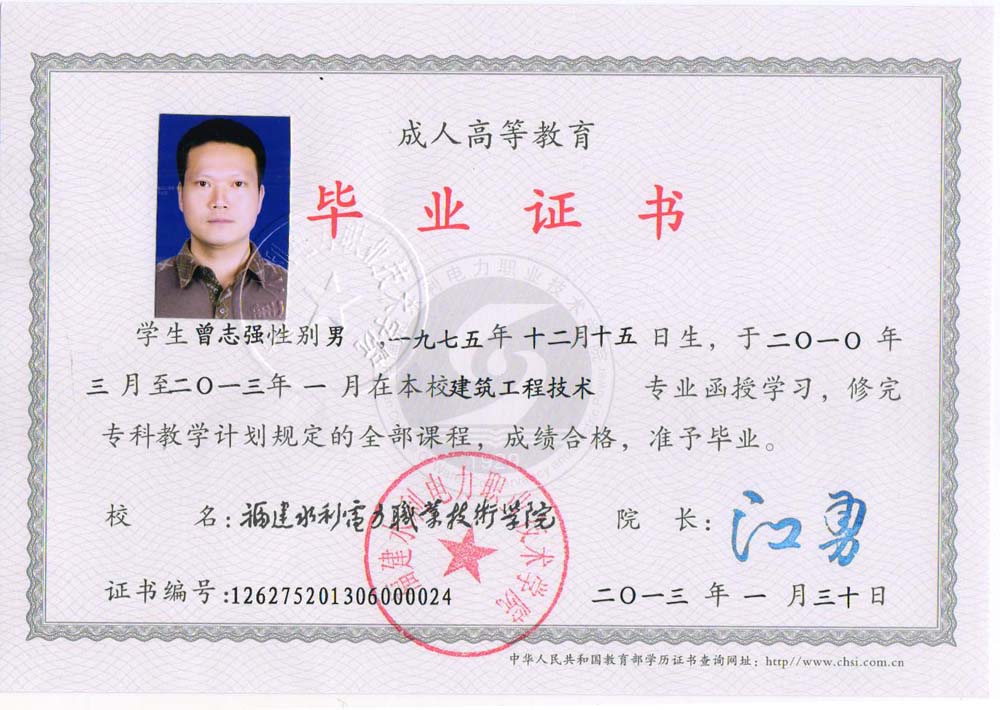 成人高等教育
毕业证书
学生曾志强性别男，一九七五年十二月十五日生，于二〇一〇年
三月至二〇一三年一月在本校建筑工程技术 专业函授学习，修完
专科教学计划规定的全部课程，成绩合格，准予毕业。
校 名：福建水利電力職業技術學院 院 长：江勇
福建水利电力职业技术学院
证书编号:126275201306000024 二〇一三年一月三十日
中华人民共和国教育部学历证书查询网址：http//www.chsi.com.cn